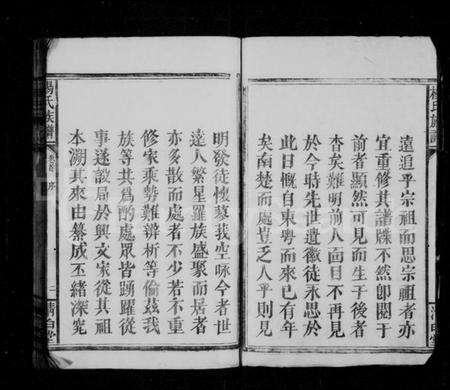 遠追乎宗祖而思宗祖者亦
宜重修其譜牒不然即閱于
前者顯然可見而生于後者
杳矣難明前人面目不再見
於今時先世遺徽徒永思於
此日慨自東粵而來已有年
矣南楚而處豈乏人乎則見
楊氏族譜
明發徒懷蓼莪空咏今者世
遠人繁星羅族盛聚而居者
亦多散而處者不少若不重
修家乘勢難辨析等倫茲我
族等共為酌處眾皆踴躍從
事遂設局於興文家從其祖
本溯其來由纂成丕緒深究
楊氏族譜
卷首 序
二
清白堂